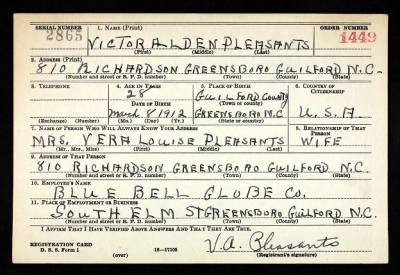 SERIAL NUMBER 1. NAME (Print) ORDER NUMBER
2865 VICTOR ALDEN PLEASANTS 1449
(First) (Middle) (Last)
2. ADDRESS (Print)
810 RICHARDSON GREENSBORO GUILFORD N.C.
(Number and street or R. F. D. number) (Town) (County) (State)
3. TELEPHONE 4. AGE IN YEARS 5. PLACE OF BIRTH 6. COUNTRY OF CITIZENSHIP
28 GUILFORD County
DATE OF BIRTH (Town or county)
March 8 1912 GREENSBORO N.C U.S.A.
(Exchange) (Number) (Mo.) (Day) (Yr.) (State or country)
7. NAME OF PERSON WHO WILL ALWAYS KNOW YOUR ADDRESS 8. RELATIONSHIP OF THAT PERSON
MRS. VERA LOUISE PLEASANTS WIFE
(Mr., Mrs., Miss) (First) (Middle) (Last)
9. ADDRESS OF THAT PERSON
810 RICHARDSON GREENSBORO GUILFORD N.C.
(Number and street or R. F. D. number) (Town) (County) (State)
10. EMPLOYER'S NAME
BLUE BELL GLOBE CO.
11. PLACE OF EMPLOYMENT OR BUSINESS
SOUTH ELM ST GREENSBORO GUILFORD N.C.
(Number and street or R. F. D. number) (Town) (County) (State)
I AFFIRM THAT I HAVE VERIFIED ABOVE ANSWERS AND THAT THEY ARE TRUE.
REGISTRATION CARD
D. S. S. Form 1 16—17105 V.A. Pleasants
(Registrant's signature)